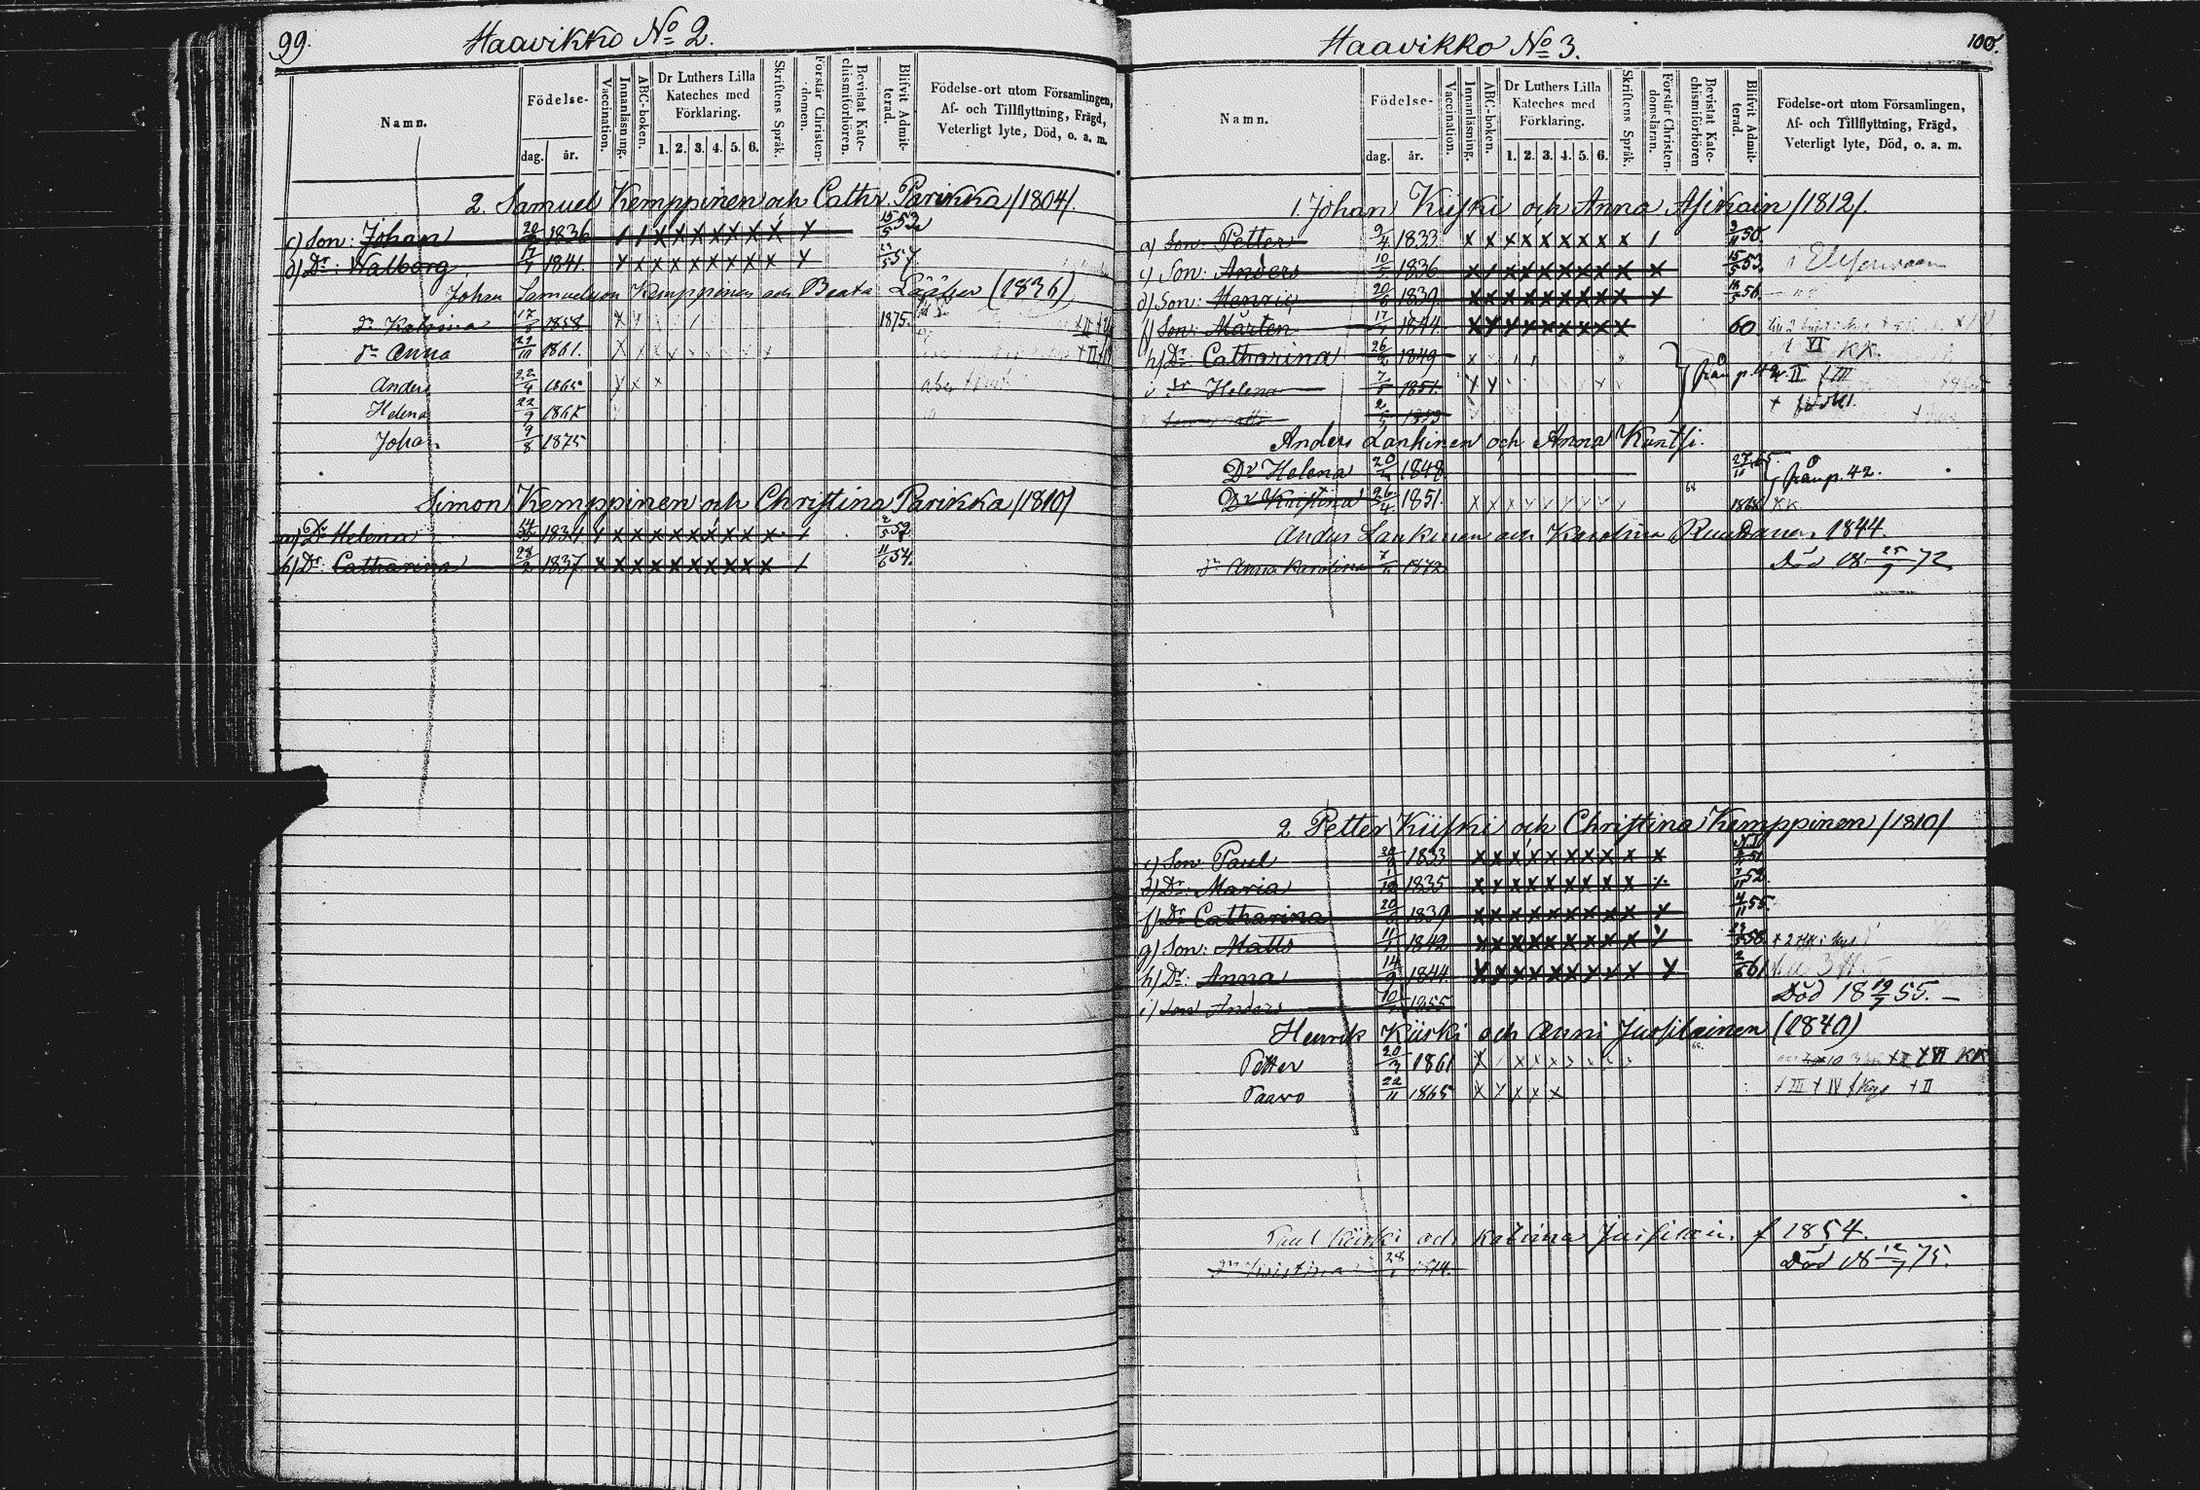 99.
Haavikko No 2.
Namn.
Födelse-
dag. år.
Vaccination.
Innanläsning.
ABC-boken.
Dr Luthers Lilla Kateches med Förklaring.
1. 2. 3. 4. 5. 6.
Skriftens Språk.
Förstår Christendomen.
Bevistat Katechismiförhören.
Blifvit Admitterad.
Födelse-ort utom Församlingen, Af- och Tillflyttning, Frägd, Veterligt lyte, Död, o. a. m.
2. Samuel Kemppinen och Cathr. Parikka /1804/.
c) Son: Johan 1836 x x x x x x x x 15/5 53
d) Dr: Walborg 1841. x x x x x x x x x x 57
Johan Samuelson Kemppinen och Beata Lääper (1836)
Dr Katrina 17/8 1858 1875.
Dr Anna 1861.
Anders 22/4 1865 x x x
Helena 22/9 1867
Johan 9/8 1875
Simon Kemppinen och Christina Parikka /1810/
a) Dr Helena 1834 x x x x x x x x x 2/5 52
b) Dr: Catharina 28/2 1837 x x x x x x x x x x 11/6 54.
100.
Haavikko No 3.
Namn.
Födelse-
dag. år.
Vaccination.
Innanläsning.
ABC-boken.
Dr Luthers Lilla Kateches med Förklaring.
1. 2. 3. 4. 5. 6.
Skriftens Språk.
Förstår Christendomsläran.
Bevistat Katechismiförhören
Blifvit Admitterad.
Födelse-ort utom Församlingen, Af- och Tillflyttning, Frägd, Veterligt lyte, Död, o. a. m.
1. Johan Kiiski och Anna Asikain /1812/.
a) Son: Petter 9/4 1833 x x x x x x x x x 50
c) Son: Anders 10/5 1836 x x x x x x x x x x 15/5 53
d) Son: Henric 20/6 1839 x x x x x x x x x x 56
f) Son: Mårten 17/1 1844 x x x x x x x x x 60
h) Dr: Catharina 26/2 1849 + VI KK.
i Dr Helena 1851 från p. 42
1853
Anders Lankinen och Anna Kuntsi.
Dr Helena 20/2 1848
Dr Kristina 26/4 1851. x x x x x x x x x 1868 KK från p. 42.
Anders Lankinen och Karolina 1844.
Dr Anna Karolina 1872 Död 18 25/7 72
2. Petter Kiiski och Christina Kemppinen /1810/
c) Son Paul 1833 x x x x x x x x x x 51
d) Dr: Maria 1/12 1835 x x x x x x x x x 52
f) Dr: Catharina 20/6 1839 x x x x x x x x x x 4/11 55.
g) Son: Matts 11/1 1842 x x x x x x x x x 58
h) Dr: Anna 14/9 1844 x x x x x x x x x x 61
i) Son Anders 1855 Död 18 19/7 55.
Henrik Kiiski och Anni Jussilainen (1840)
Petter 20/3 1861 + VI KK
Paavo 22/11 1865 x x x x x + III + IV + II
Paul Kiiski och Katrina Jussilain. f 1854.
Dr Kristina 1874. Död 18 12/7 75.